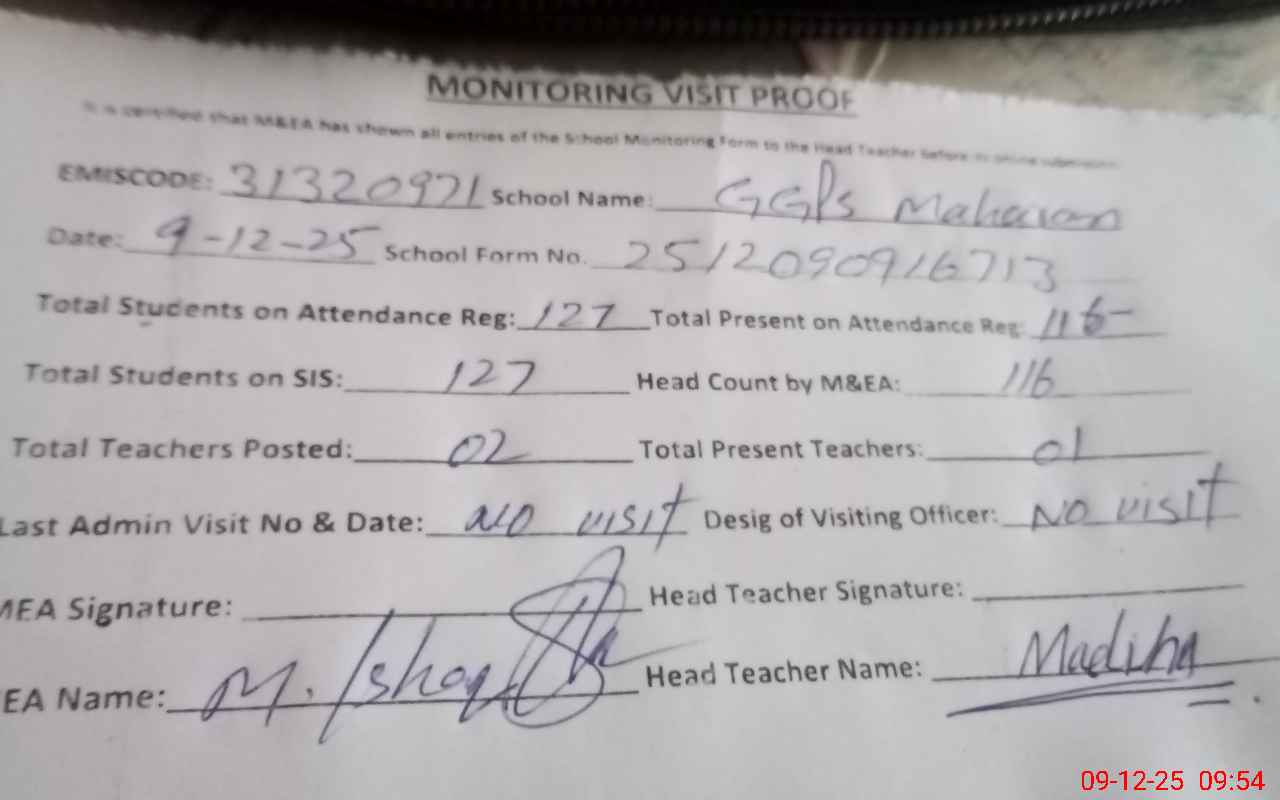 MONITORING VISIT PROOF
It is certified that M&EA has shown all entries of the School Monitoring Form to the Head Teacher before its online submission.
EMISCODE: 31320971 School Name: GGPS Maharan
Date: 9-12-25 School Form No. 2512090916713
Total Students on Attendance Reg: 127 Total Present on Attendance Reg: 116
Total Students on SIS: 127 Head Count by M&EA: 116
Total Teachers Posted: 02 Total Present Teachers: 01
Last Admin Visit No & Date: NO visit Desig of Visiting Officer: NO visit
MEA Signature: Head Teacher Signature:
EA Name: M. Ishaq Head Teacher Name: Madiha
09-12-25 09:54